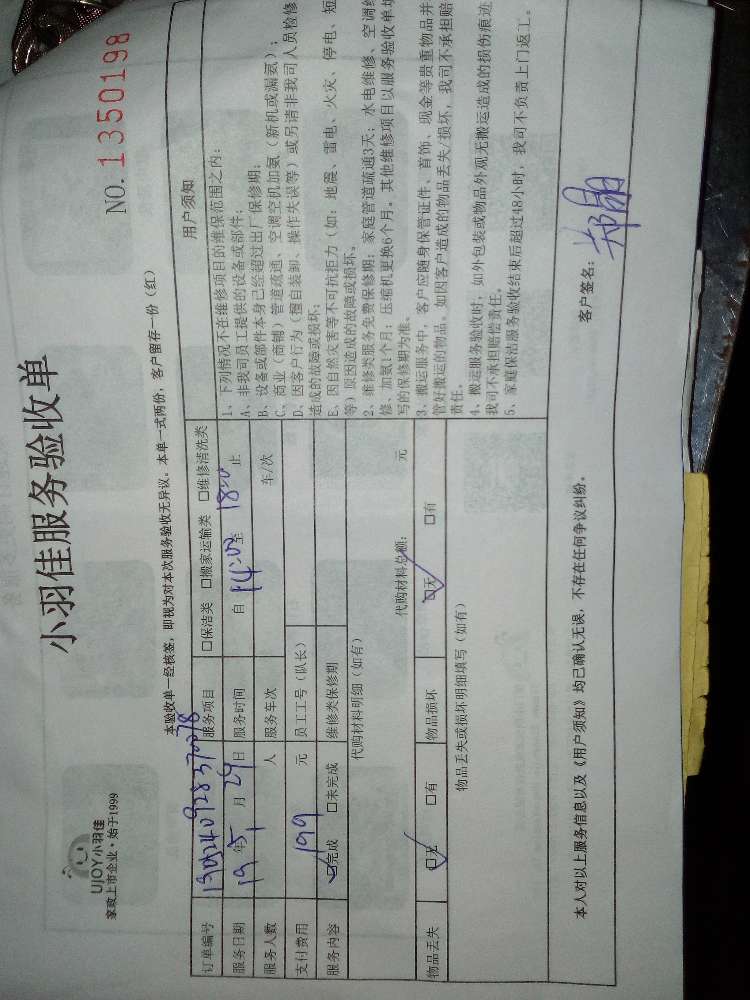 UJOY小羽佳
家政上市企业·始于1999
小羽佳服务验收单
NO. 1350198
本验收单一经核签，即视为对本次服务验收无异议。本单一式两份，客户留存一份（红）
订单编号 服务项目 □保洁类 □搬家运输类 □维修清洗类
服务日期 19年5月29日 服务时间 自14:00至18:00止
服务人数 人 服务车次 车/次
支付费用 199 元 员工工号（队长）
服务内容 ☑完成 □未完成 维修类保修期
代购材料明细（如有）
代购材料总额： 元
物品丢失 ☑无 □有 物品损坏 ☑无 □有
物品丢失或损坏明细填写（如有）
用户须知
1、下列情况不在维修项目的维保范围之内：
A、非我司员工提供的设备或部件；
B、设备或部件本身已经超过出厂保修期；
C、商业（商铺）管道疏通、空调空机加氨（新机或漏氨）；
D、因客户行为（擅自装卸、操作失误等）或另请非我司人员检修
造成的故障或损坏；
E、因自然灾害等不可抗拒力（如：地震、雷电、火灾、停电、短
等）原因造成的故障或损坏。
2、维修类服务免费保修期：家庭管道疏通3天；水电维修、空调维
修、加氨1个月；压缩机更换6个月。其他维修项目以服务验收单填
写的保修期为准。
3、搬运服务中，客户应随身保管证件、首饰、现金等贵重物品并
管好搬运的物品。如因客户造成的物品丢失/损坏，我司不承担赔
责任。
4、搬运服务验收时，如外包装或物品外观无搬运造成的损伤痕迹
我司不承担赔偿责任。
5、家庭保洁服务验收结束后超过48小时，我司不负责上门返工。
本人对以上服务信息以及《用户须知》均已确认无误，不存在任何争议纠纷。
客户签名：